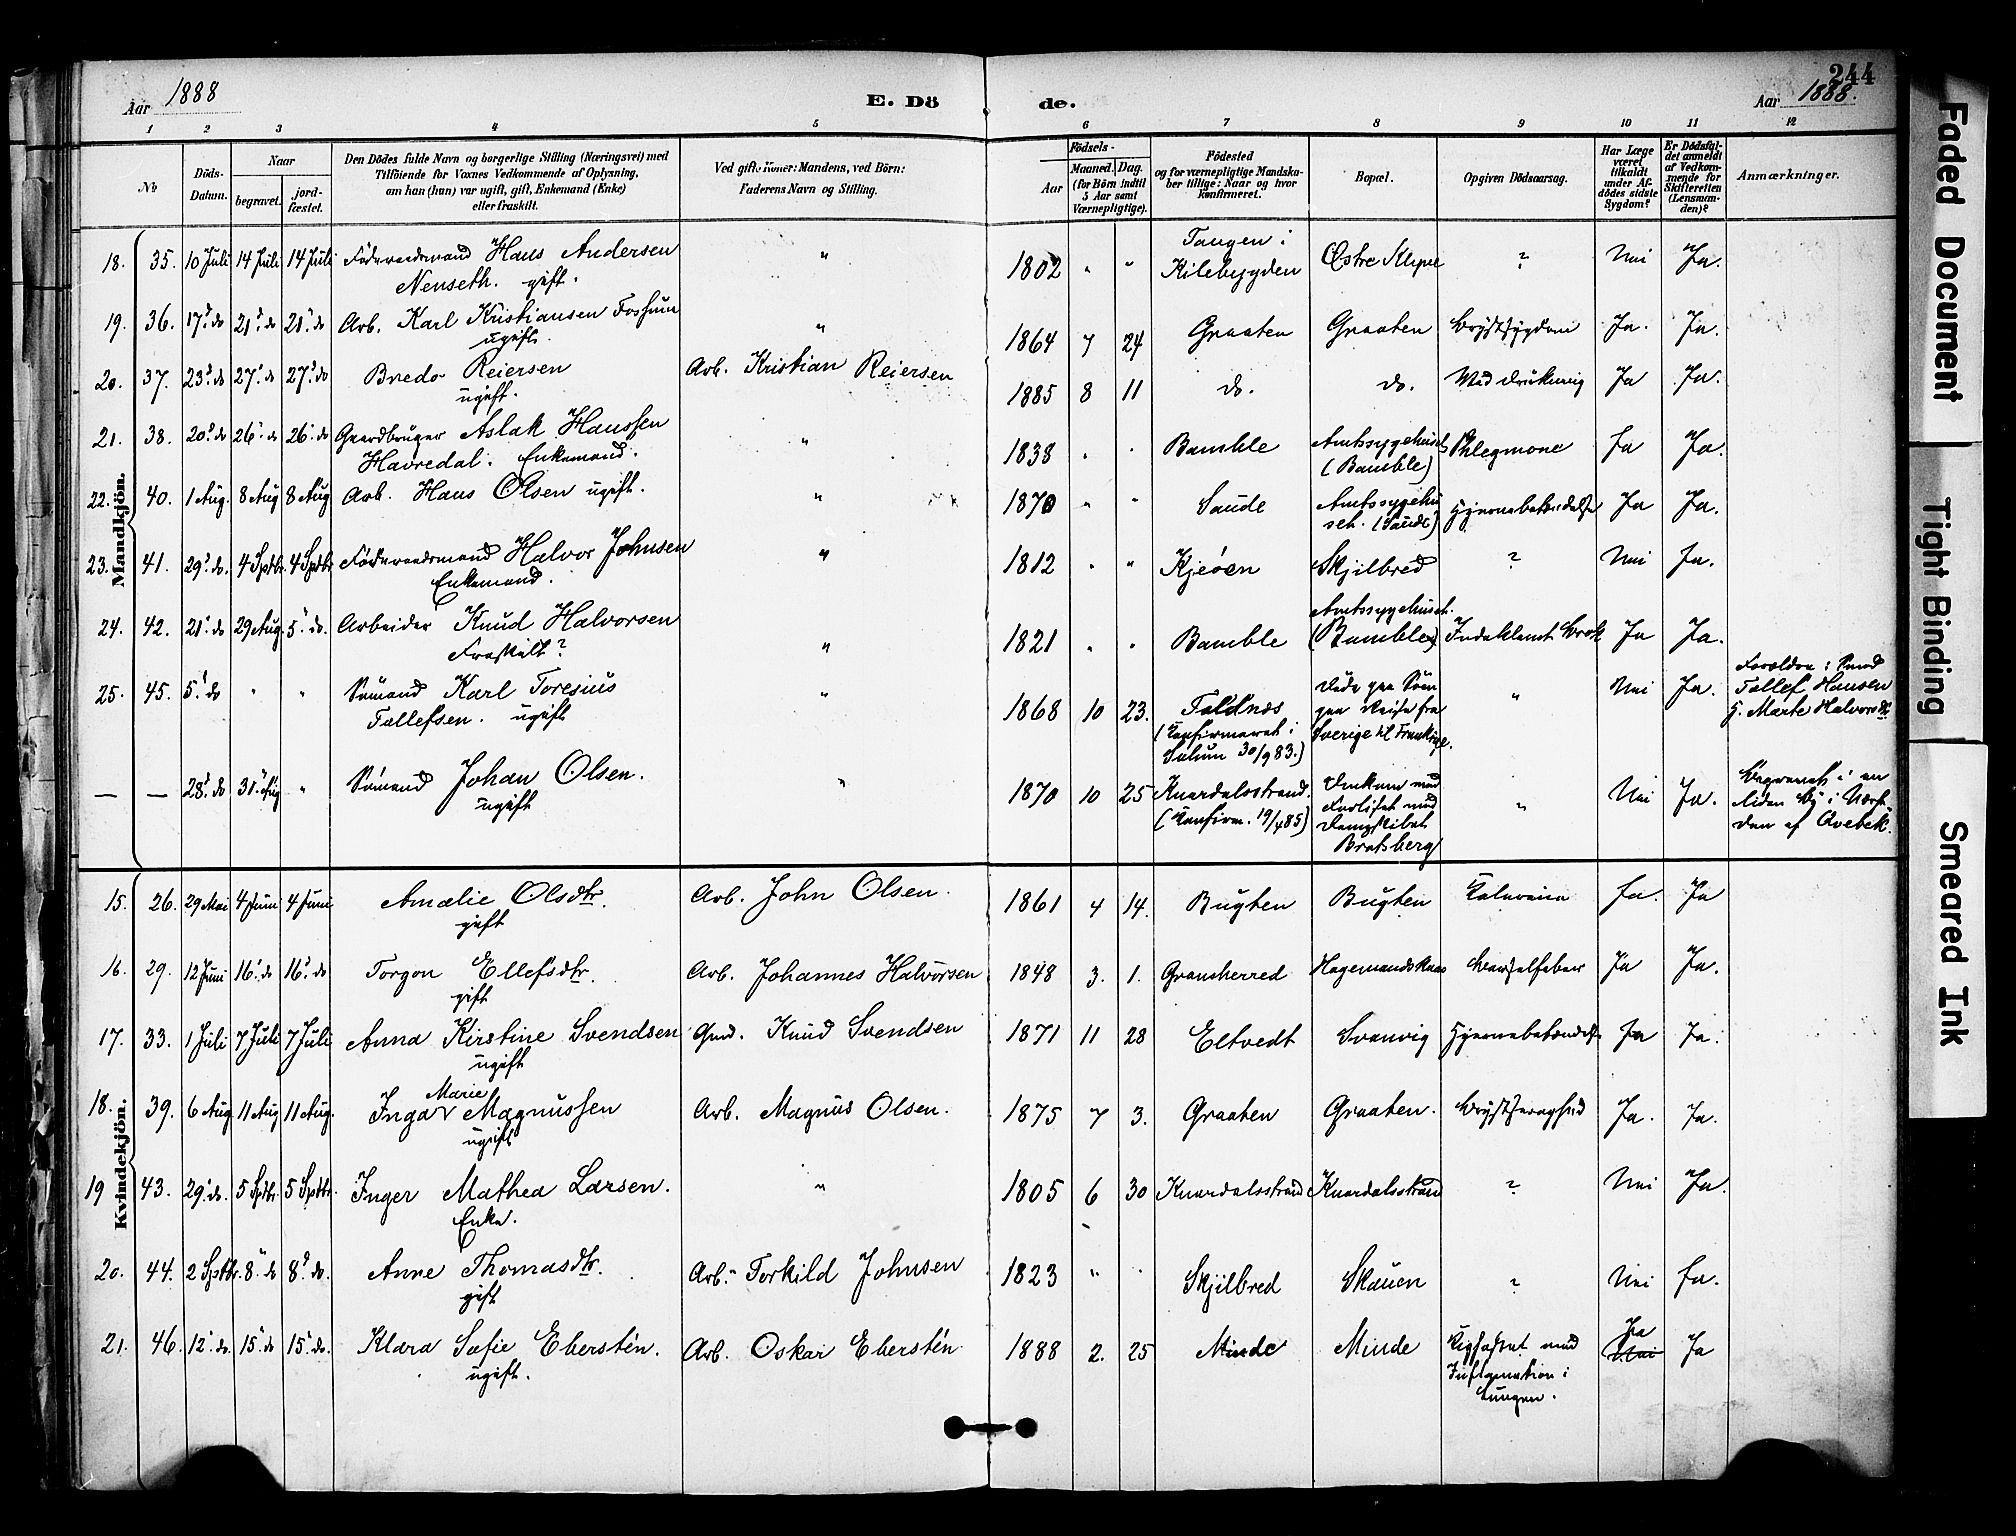 244
Aar 1888
E. Dö
de.
Aar 1888.
1 2 3 4 5 6 7 8 9 10 11 12
No
Döds-
Datum.
Naar
begravet.
jord-
fæstet.
Den Dödes fulde Navn og borgerlige Stilling (Næringsvei) med
Tilföiende for Voxnes Vedkommende af Oplysning,
om han (hun) var ugift, gift, Enkemand (Enke)
eller fraskilt.
Ved gifte Koner: Mandens, ved Börn:
Faderens Navn og Stilling.
Födsels-
Aar
Maaned. Dag.
(for Börn indtil
5 Aar samt
Værnepligtige).
Födested
og for værnepligtige Mandska-
ber tillige: Naar og hvor
konfirmeret.
Bopæl.
Opgiven Dödsaarsag.
Har Læge
været
tilkaldt
under Af-
dödes sidste
Sygdom?
Er Dödsfal-
det anmeldt
af Vedkom-
mende for
Skifteretten
(Lensman-
den)?
Anmærkninger.
Mandkjön.
18. 35. 10 Juli 14 Juli 14 Juli Föderaadsmand Hans Andersen " 1802 " " Tangen i
Nenseth. gift. Kilebygden Östre Klype ? Nei Ja.
19. 36. 17. do 21. do 21. do Arb. Karl Kristiansen Fossum " 1864 7 24 Graaten Graaten Brystsygdom Ja. Ja.
ugift.
20. 37. 23. do 27. do 27. do Bredo Reiersen Arb. Kristian Reiersen 1885 8 11 do. do. Ved drukning Ja Ja.
ugift.
21. 38. 20. do 26. do 26. do Gaardbruger Aslak Hanssen " 1838 " " Bamble Amtssygehuset Phlegmone Ja Ja.
Havredal. Enkemand. (Bamble)
22. 40. 1 Aug. 8 Aug 8 Aug Arb. Hans Olsen ugift. " 1870 " " Saude Amtssygehu- Hjernebetændelse Ja Ja.
set. (Saude)
23. 41. 29. do. 4 Sptbr. 4 Sptbr. Föderaadsmand Halvor Johnsen " 1812 " " Kjeöen Skjilbred ? Nei Ja.
Enkemand.
24. 42. 21. do. 29 Aug. 5. do. Arbeider Knud Halvorsen " 1821 " " Bamble Amtssygehuset. Indeklemt Brok Ja Ja.
Fraskilt? (Bamble)
25. 45. 5. do " " Sömand Karl Toresius " 1868 10 23. Foldnæs Döde paa Söen " Nei Ja. Forældre: Smed
Tollefsen. ugift (Konfirmeret i paa Reise fra Tollef Hansen
Solum 30/9 83.) Sverige til Frankrige. H. Marte Halvorsdtr.
— — 28. do 31. Aug " Sömand Johan Olsen. " 1870 10 25 Knardalsstrand. Omkom ved " Nei Ja. Begravet i en
ugift (Konfirm. 19/4 85) Forliset med liden By i
Dampskibet
Bratsberg
Kvindekjön.
15. 26. 29 Mai 4 Juni 4 Juni Amalie Olsdtr. Arb. John Olsen. 1861 4 14. Bugten Bugten Ja. Ja
gift
16. 29. 12 Juni 16. do 16. do Torgon Ellefsdtr. Arb. Johannes Halvorsen 1848 3. 1. Gransherred Barselfeber Ja Ja.
gift
17. 33. 1 Juli 7 Juli 7 Juli Anna Kirstine Svendsen Knud Svendsen 1871 11 28 Eltvedt Svanvig Hjernebetændelse Ja Ja.
ugift
18. 39. 6 Aug 11 Aug 11 Aug. Inga Marie Magnussen Arb. Magnus Olsen. 1875 7 3. Graaten Graaten. Brystsvaghed Ja. Ja.
ugift
19 43. 29. do. 5 Sptbr. 5 Sptbr. Inger Mathea Larsen. " 1805 6 30 Knardalsstrand Knardalsstrand ? Nei Ja.
Enke.
20. 44. 2 Sptbr. 8. do 8. do. Anne Thomasdtr. Arb. Torkild Johnsen 1823 " " Skjilbred Skauen ? Nei Ja.
gift
21. 46. 12. do. 15. do 15. do. Klara Sofie Ebersten. Arb. Oskar Ebersten 1888 2. 25 Minde Minde med Ja Ja
ugift. Inflamation i Nei
Lungen.
Faded Document
Tight Binding
Smeared Ink